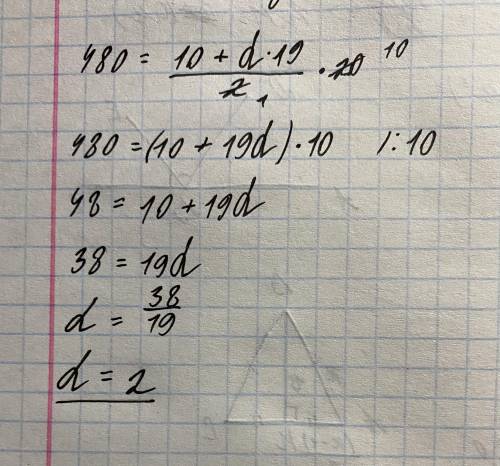 480 = (10 + d·19)/2 · 20 10
1
480 = (10 + 19d)·10 /:10
48 = 10 + 19d
38 = 19d
d = 38/19
d = 2